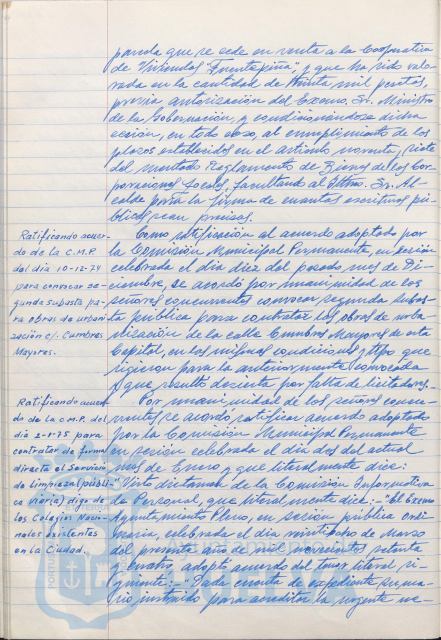 parcela que se cede en venta a la Cooperativa
de Viviendas "Fuentepiña", y que ha sido valo-
rada en la cantidad de treinta mil pesetas,
previa autorización del Excmo. Sr. Ministro
de la Gobernación, y condicionándose dicha
cesión, en todo caso, al cumplimiento de los
plazos establecidos en el artículo noventa y siete
del mentado Reglamento de Bienes de las Cor-
poraciones Locales, facultando al Iltmo. Sr. Al-
calde para la firma de cuantas escrituras pú-
blicas sean precisas.
Ratificando acuer-
do de la C.M.P.
del día 10-12-74
para convocar se-
gunda subasta pa-
ra obras de urbani
zación c/. Cumbres
Mayores.
Como ratificación al acuerdo adoptado por
la Comisión Municipal Permanente, en sesión
celebrada el día diez del pasado mes de Di-
ciembre, se acordó por unanimidad de los
señores concurrentes convocar segunda subas-
ta pública para contratar las obras de urba-
nización de la calle Cumbres Mayores de esta
Capital, en las mismas condiciones y tipo que
rigieron para la anteriormente convocada
y que resultó desierta por falta de licitadores.
Ratificando acuer
do de la C.M.P. del
día 2-1-75 para
contratar de forma
directa el Servicio
de limpieza (públi-
ca viaria) digo de
los Colegios Nacio-
nales existentes
en la Ciudad.
Por unanimidad de los señores concu-
rrentes se acordó ratificar acuerdo adoptado
por la Comisión Municipal Permanente
en sesión celebrada el día dos del actual
mes de Enero y que literalmente dice:
"Visto dictamen de la Comisión Informativa
de Personal, que literalmente dice:- "El Excmo
Ayuntamiento Pleno, en sesión pública ordi-
naria, celebrada el día veintiocho de Marzo
del presente año de mil novecientos setenta
y cuatro, adoptó acuerdo del tenor literal si-
guiente:- "Dada cuenta de expediente suma-
rio instruido para acreditar la urgente ne-